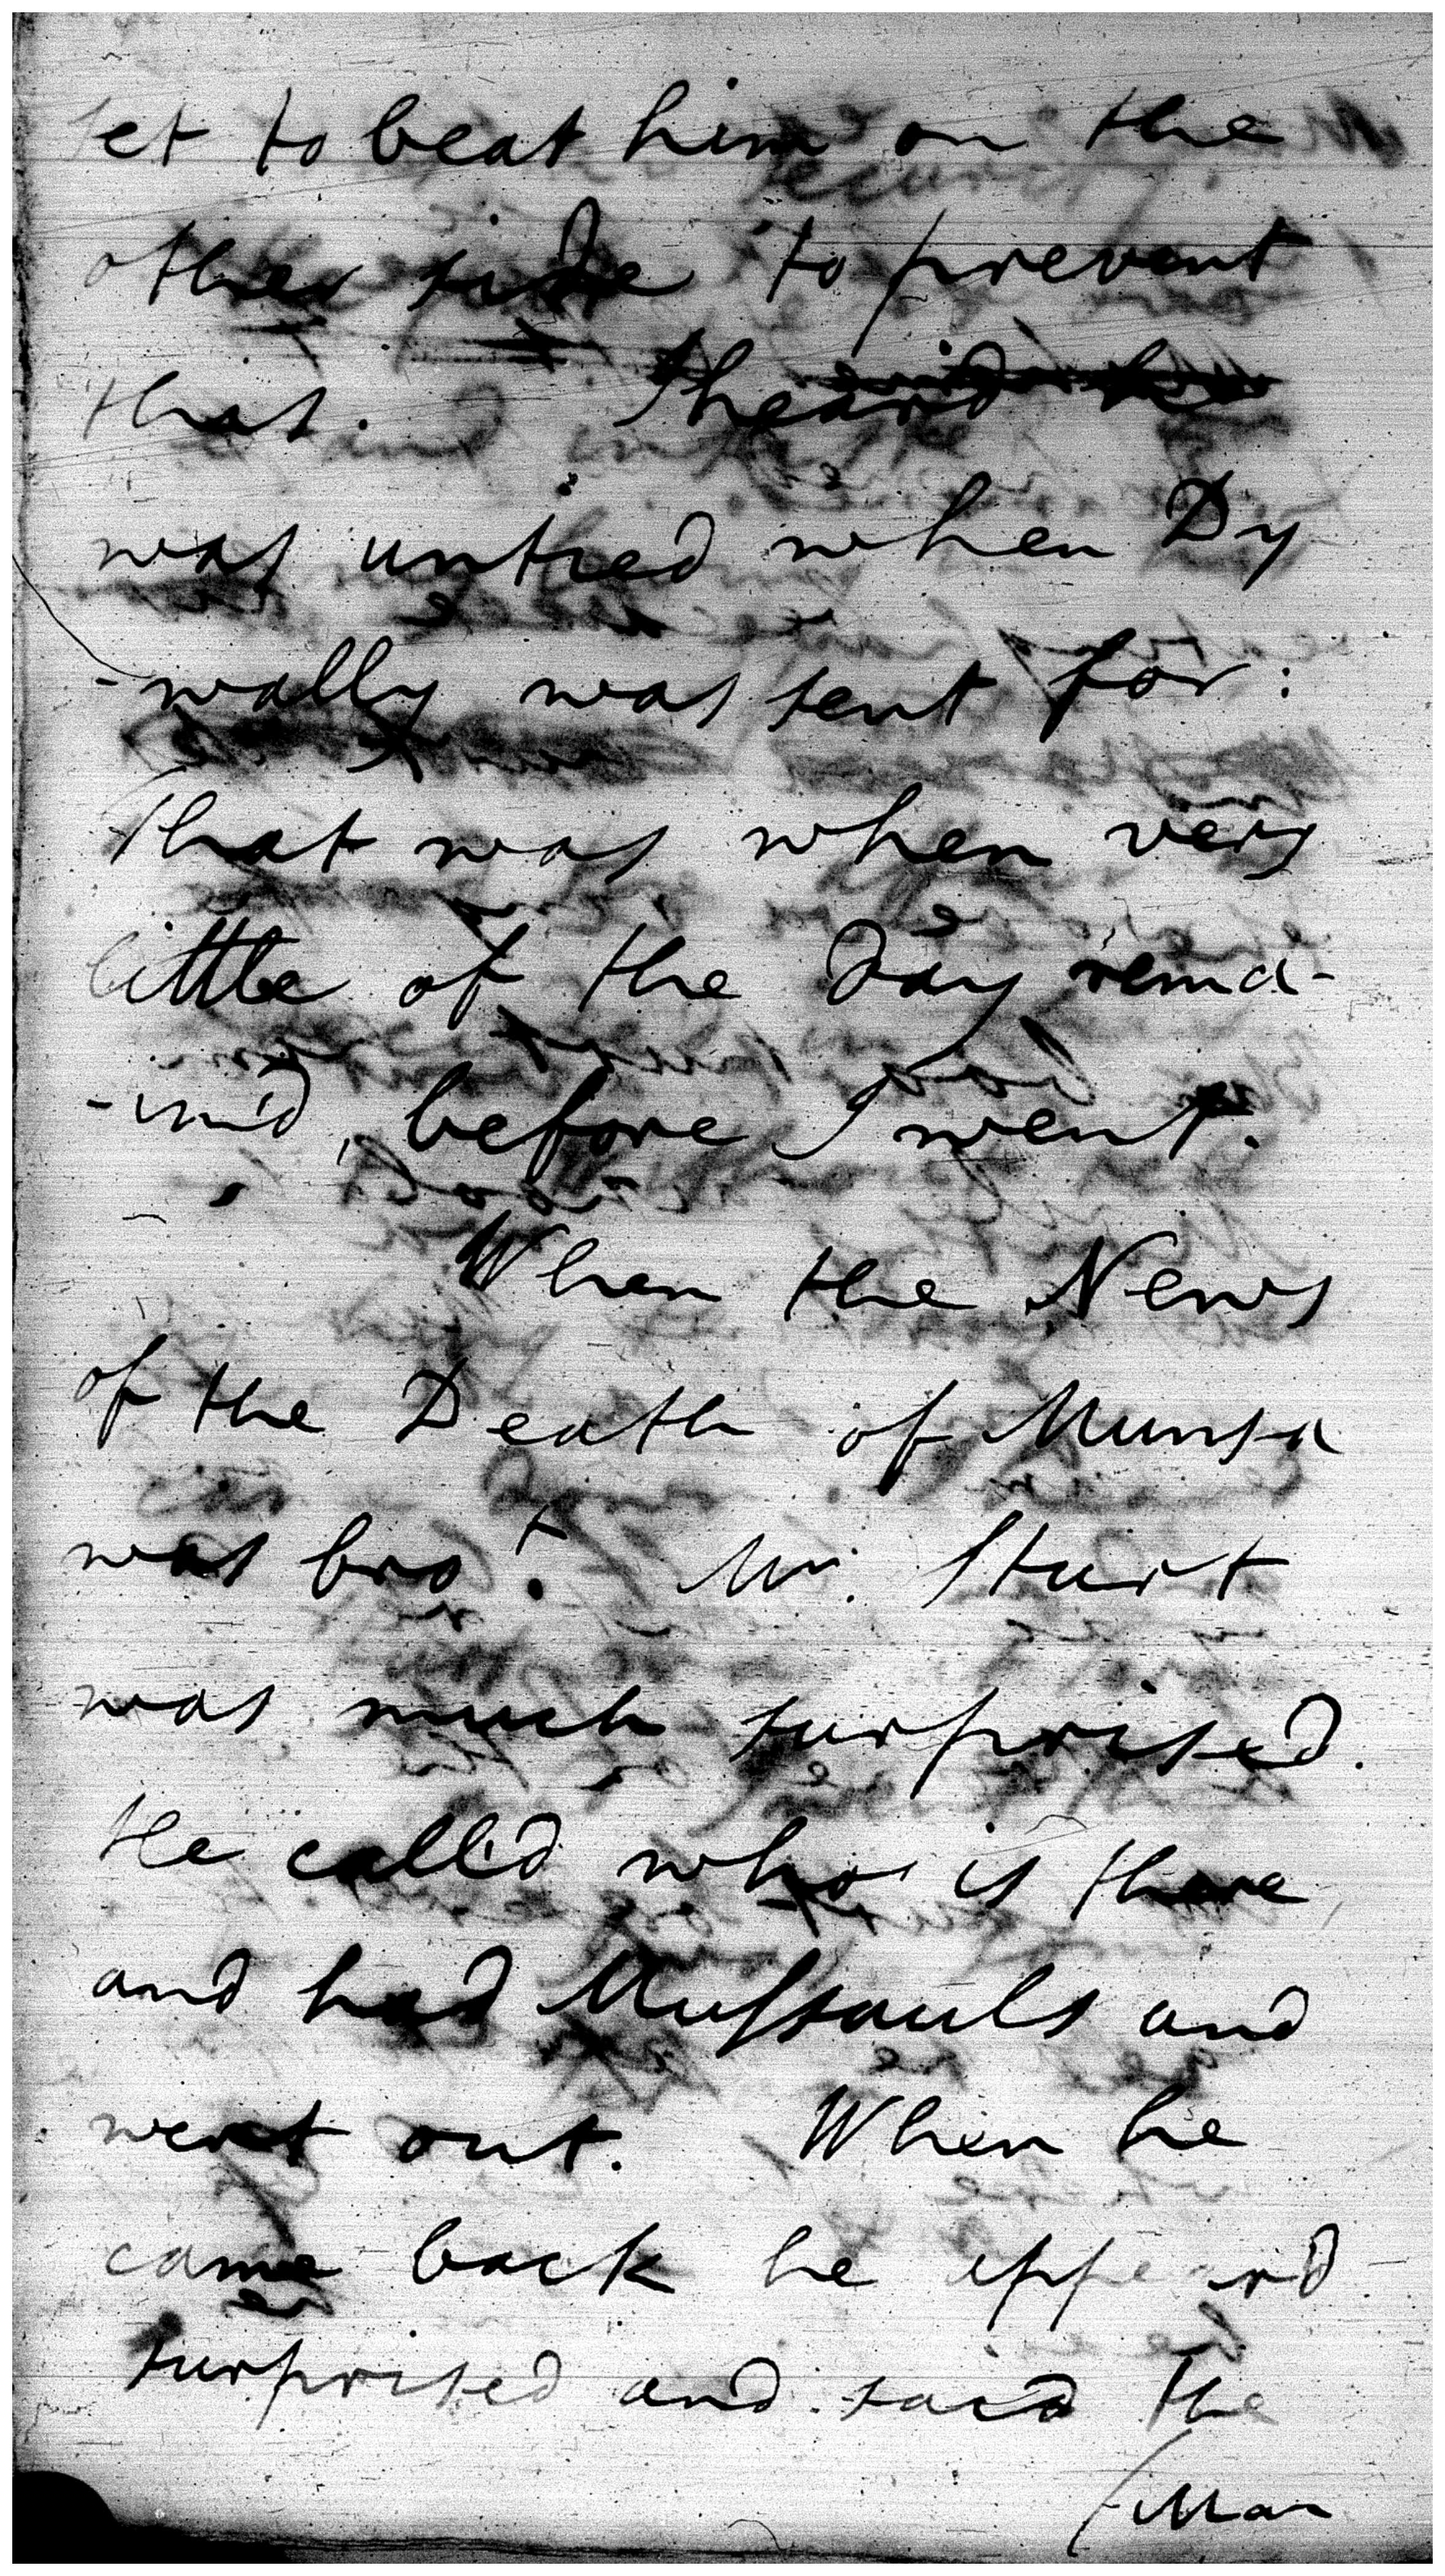 set to beat him on the
other side to prevent
that. I heard he
was untied when Dy
-wally was sent for:
That was when very
little of the Day rema-
-in'd, before I went.
When the News
of the Death of Munsa
was bro.t Mr. Sturt
was much surprised.
He call'd who is there
and had Mussauls and
went out. When he
came back he appeard
surprised and said the
(Man